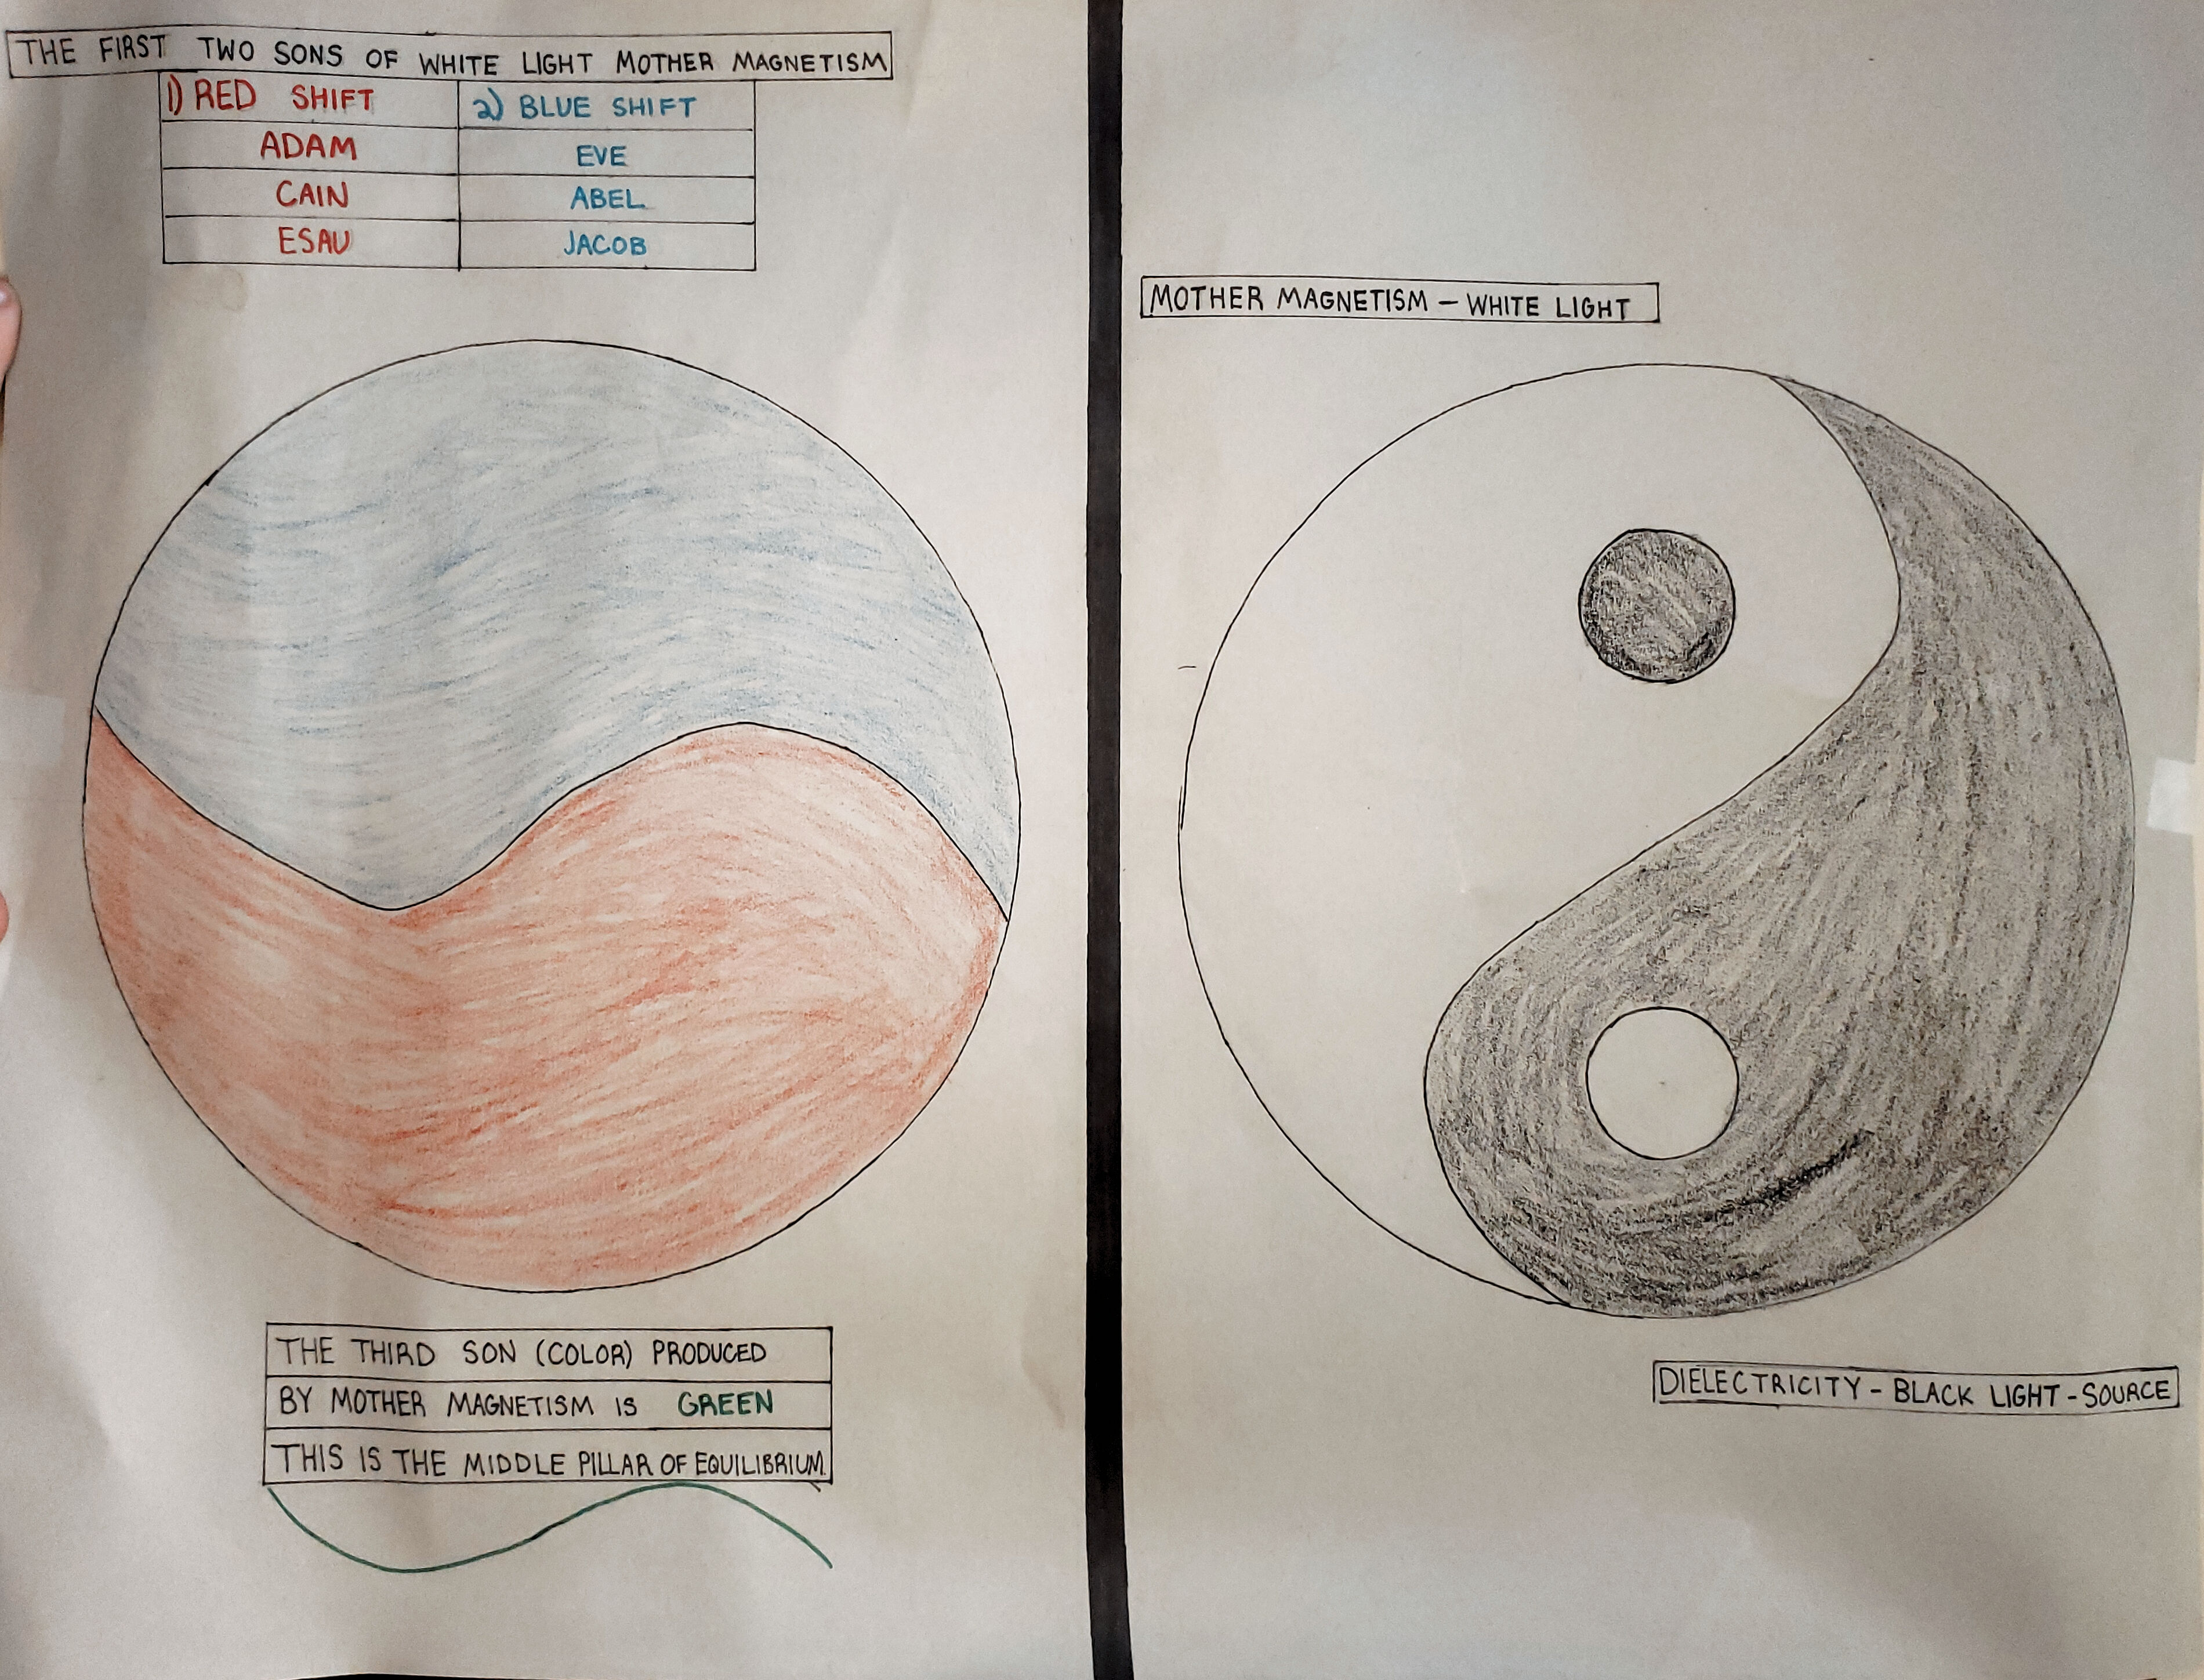 THE FIRST TWO SONS OF WHITE LIGHT MOTHER MAGNETISM
1) RED SHIFT 2) BLUE SHIFT
ADAM EVE
CAIN ABEL
ESAU JACOB
THE THIRD SON (COLOR) PRODUCED
BY MOTHER MAGNETISM IS GREEN
THIS IS THE MIDDLE PILLAR OF EQUILIBRIUM.
MOTHER MAGNETISM - WHITE LIGHT
DIELECTRICITY - BLACK LIGHT - SOURCE